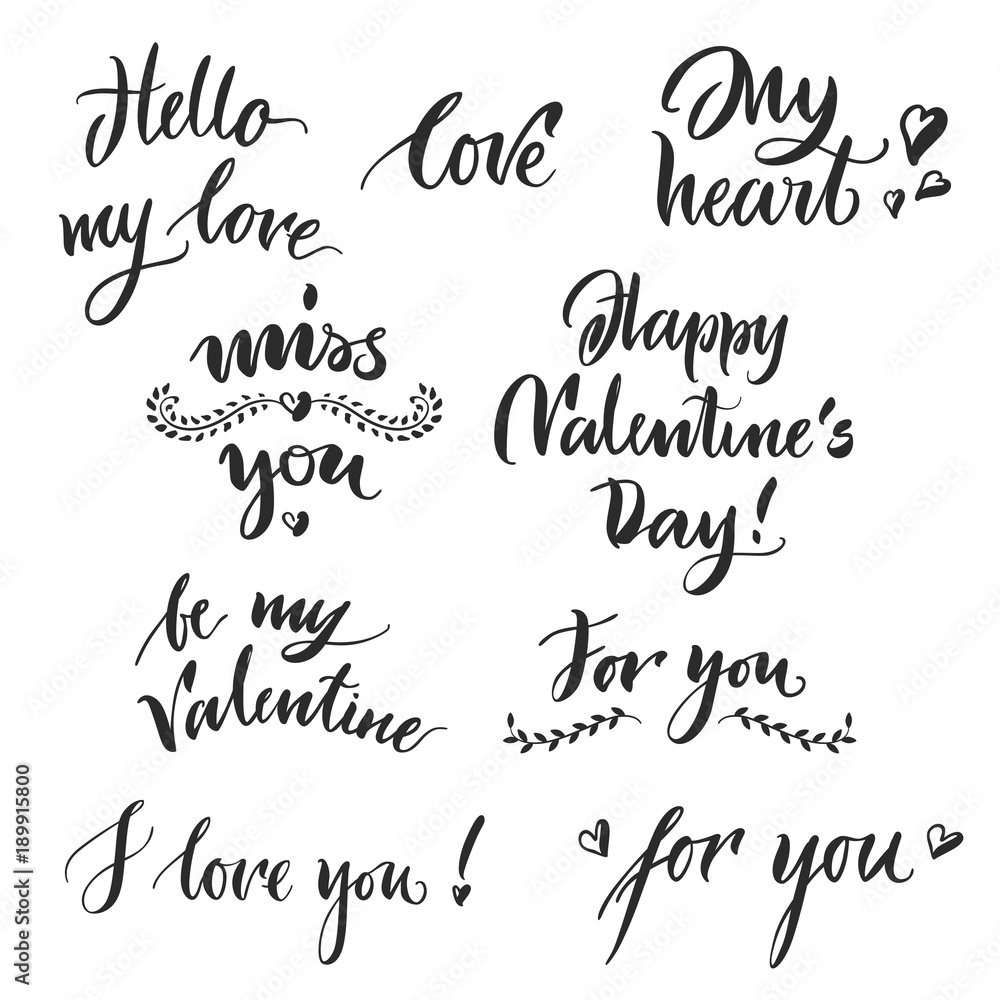 Hello
my love
love
My
heart
miss
you
Happy
Valentine's
Day!
be my
Valentine
For you
I love you!
for you
Adobe Stock | #189915800